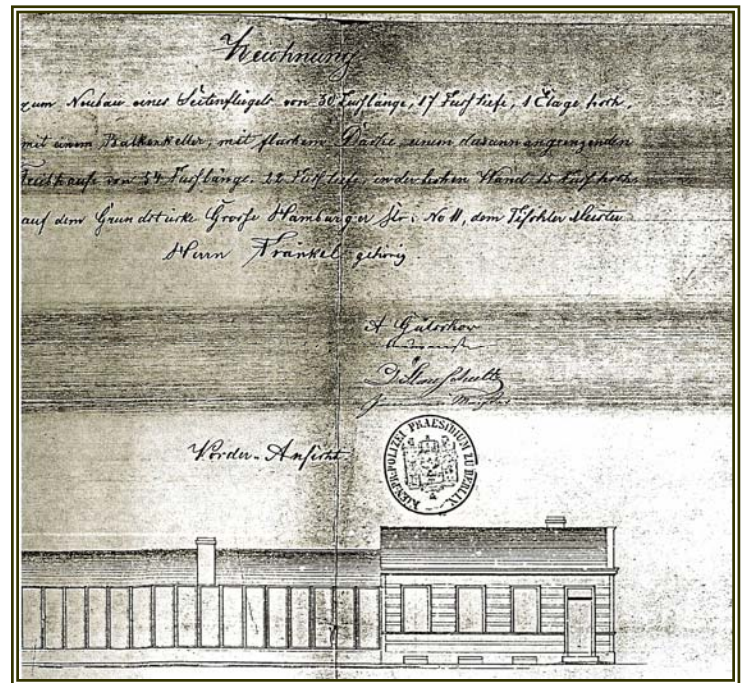 Zeichnung
zum Neubau eines Seitenflügels von 30 Fuß länge, 17 Fuß tiefe, 1 Etage hoch,
mit einem Balkenkeller, mit flachem Dache, einem daran angrenzenden
von 54 Fuß länge. 22 Fuß tiefe, in der hohen Wand 15 Fuß hoch.
auf dem Grundstücke Große Hamburger Str: No 11, dem Tischler Meister
Herrn Fränkel gehörig.
A
Vorder-Ansicht
KŒN: PR: POLIZEI PRAESIDIUM ZU BERLIN